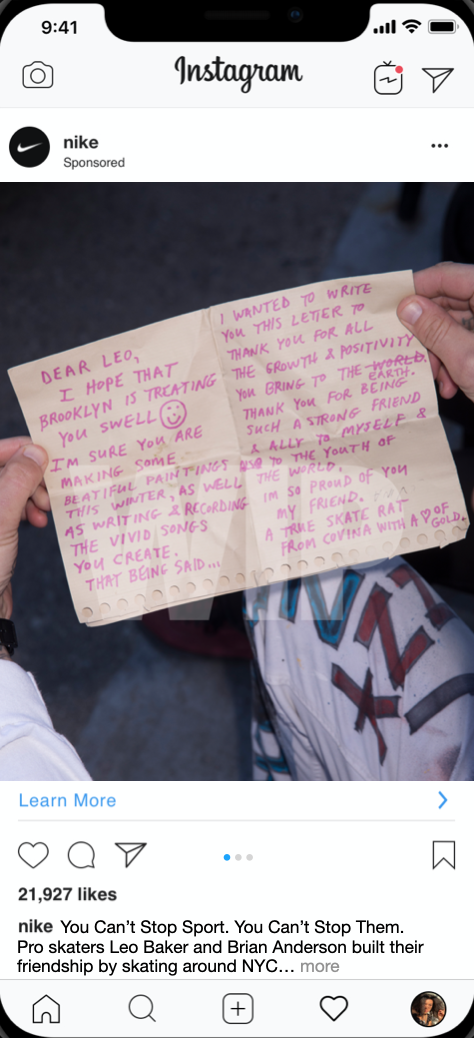 9:41
Instagram
nike
Sponsored
DEAR LEO,
I HOPE THAT
BROOKLYN IS TREATING
YOU SWELL
I'M SURE YOU ARE
MAKING SOME
BEATIFUL PAINTINGS
THIS WINTER, AS WELL
AS WRITING & RECORDING
THE VIVID SONGS
YOU CREATE.
THAT BEING SAID...
I WANTED TO WRITE
YOU THIS LETTER TO
THANK YOU FOR ALL
THE GROWTH & POSITIVITY
YOU BRING TO THE WORLD.
EARTH.
THANK YOU FOR BEING
SUCH A STRONG FRIEND
& ALLY TO MYSELF &
TO THE YOUTH OF
THE WORLD.
IM SO PROUD OF YOU
MY FRIEND.
A TRUE SKATE RAT
FROM COVINA WITH A OF
GOLD.
Learn More
21,927 likes
nike You Can’t Stop Sport. You Can’t Stop Them.
Pro skaters Leo Baker and Brian Anderson built their
friendship by skating around NYC… more